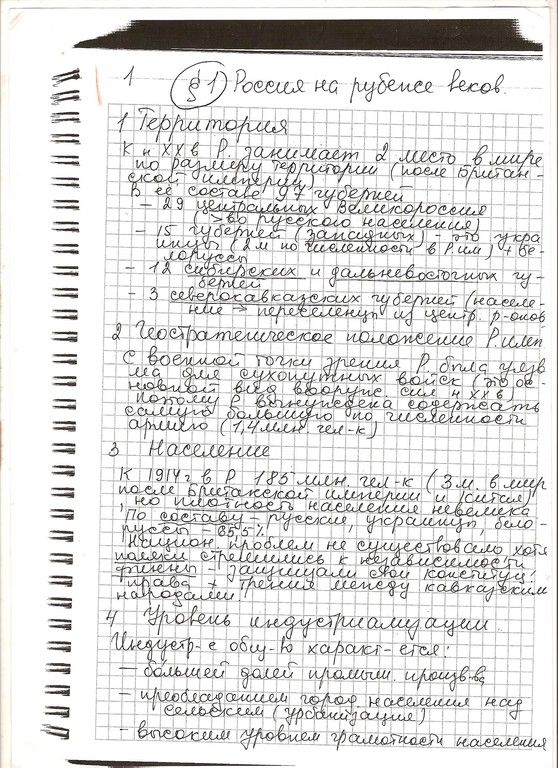 1 §1 Россия на рубеже веков.
1 Территория
К н XX в Р. занимает 2 место в мире
по размеру территории (после Британ-
ской империи)
В её составе 97 губерний
- 29 центральных Великороссия
(>во русского населения)
- 15 губерний (западных) - это укра
инцы (2 м по численности в Р.им) + бе-
лоруссы
- 12 сибирских и дальневосточных гу-
берний
- 3 северокавказских губерний (населе-
ние → переселенцы из центр. р-онов
2 Геостратегическое положение Р. имп
С военной точки зрения Р. была уязв
ма для сухопутных войск (это ос-
новной вид вооруж. сил н XX в)
поэтому Р вынуждена содержать
самую большую по численности
армию (1,4 млн. чел-к)
3 Население
К 1914 г. в Р 185 млн. чел-к (3 м. в мир
после Британской империи и Китая)
, но плотность населения невелика
По составу - русские, украинцы, бело-
руссы - 65,5%
Национ. проблем не существовало хотя
поляки стремились к независимости
финны - защищали свои конституц.
права + трения между кавказским
народами
4 Уровень индустриализации
Индустр-е общ-во характ-ется:
- большей долей промыш. произв-ва
- преобладанием город. населения над
сельским (урбанизация)
- высоким уровнем грамотности населения